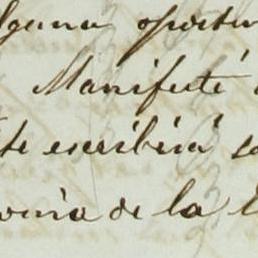 lguna oportu
Manifesté
te escribirá so
de la